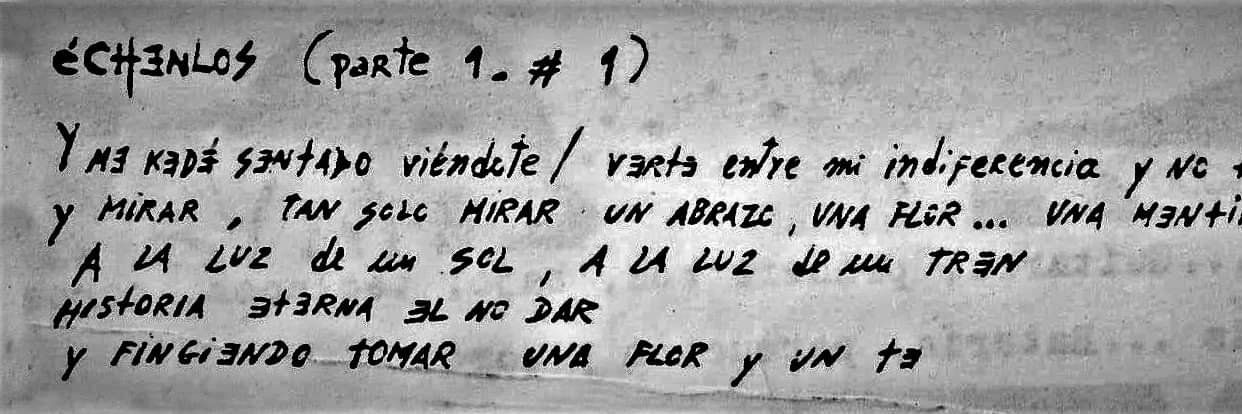 éCHENLOS (parte 1. # 1)
Y ME KEDÉ SENTADO viéndote / VERTE entre mi indiferencia y NO
y MIRAR, TAN SOLO MIRAR UN ABRAZO, UNA FLOR... UNA
A LA LUZ de un SOL, A LA LUZ de un TREN
HISTORIA ETERNA EL NO DAR
y FINGiENDO TOMAR UNA FLOR y UN tE